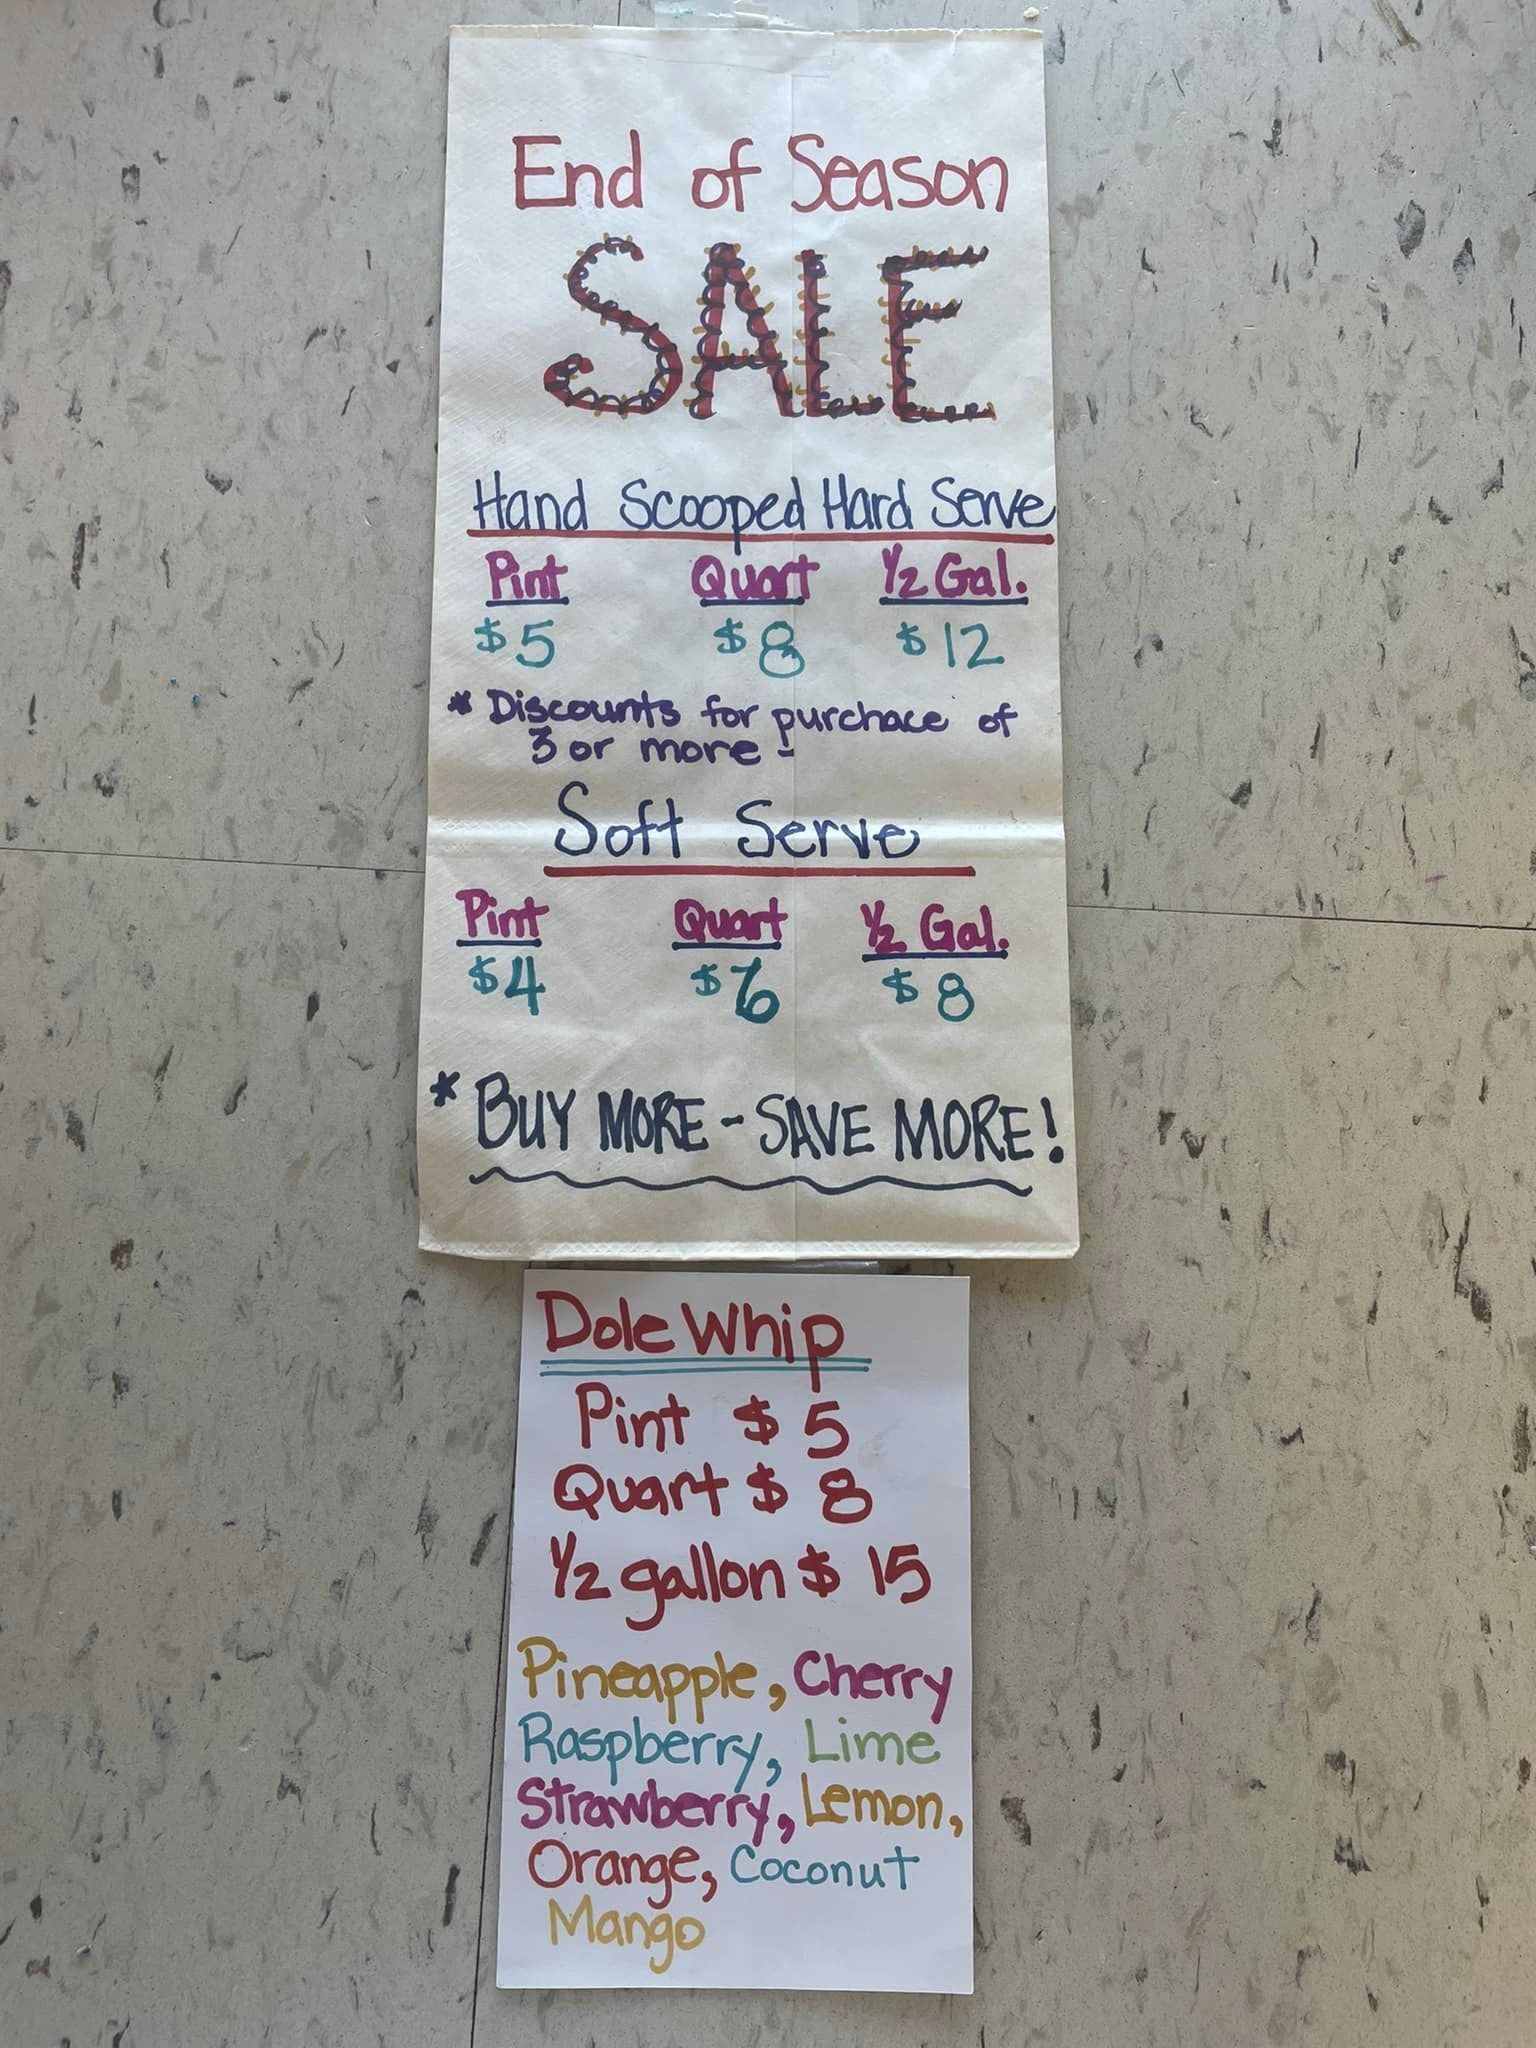 End of Season
SALE
Hand Scooped Hard Serve
Pint Quart 1/2 Gal.
$5 $8 $12
* Discounts for purchace of
3 or more -
Soft Serve
Pint Quart 1/2 Gal.
$4 $6 $8
* BUY MORE - SAVE MORE!
Dole Whip
Pint $5
Quart $8
1/2 gallon $15
Pineapple, Cherry
Raspberry, Lime
Strawberry, Lemon,
Orange, Coconut
Mango